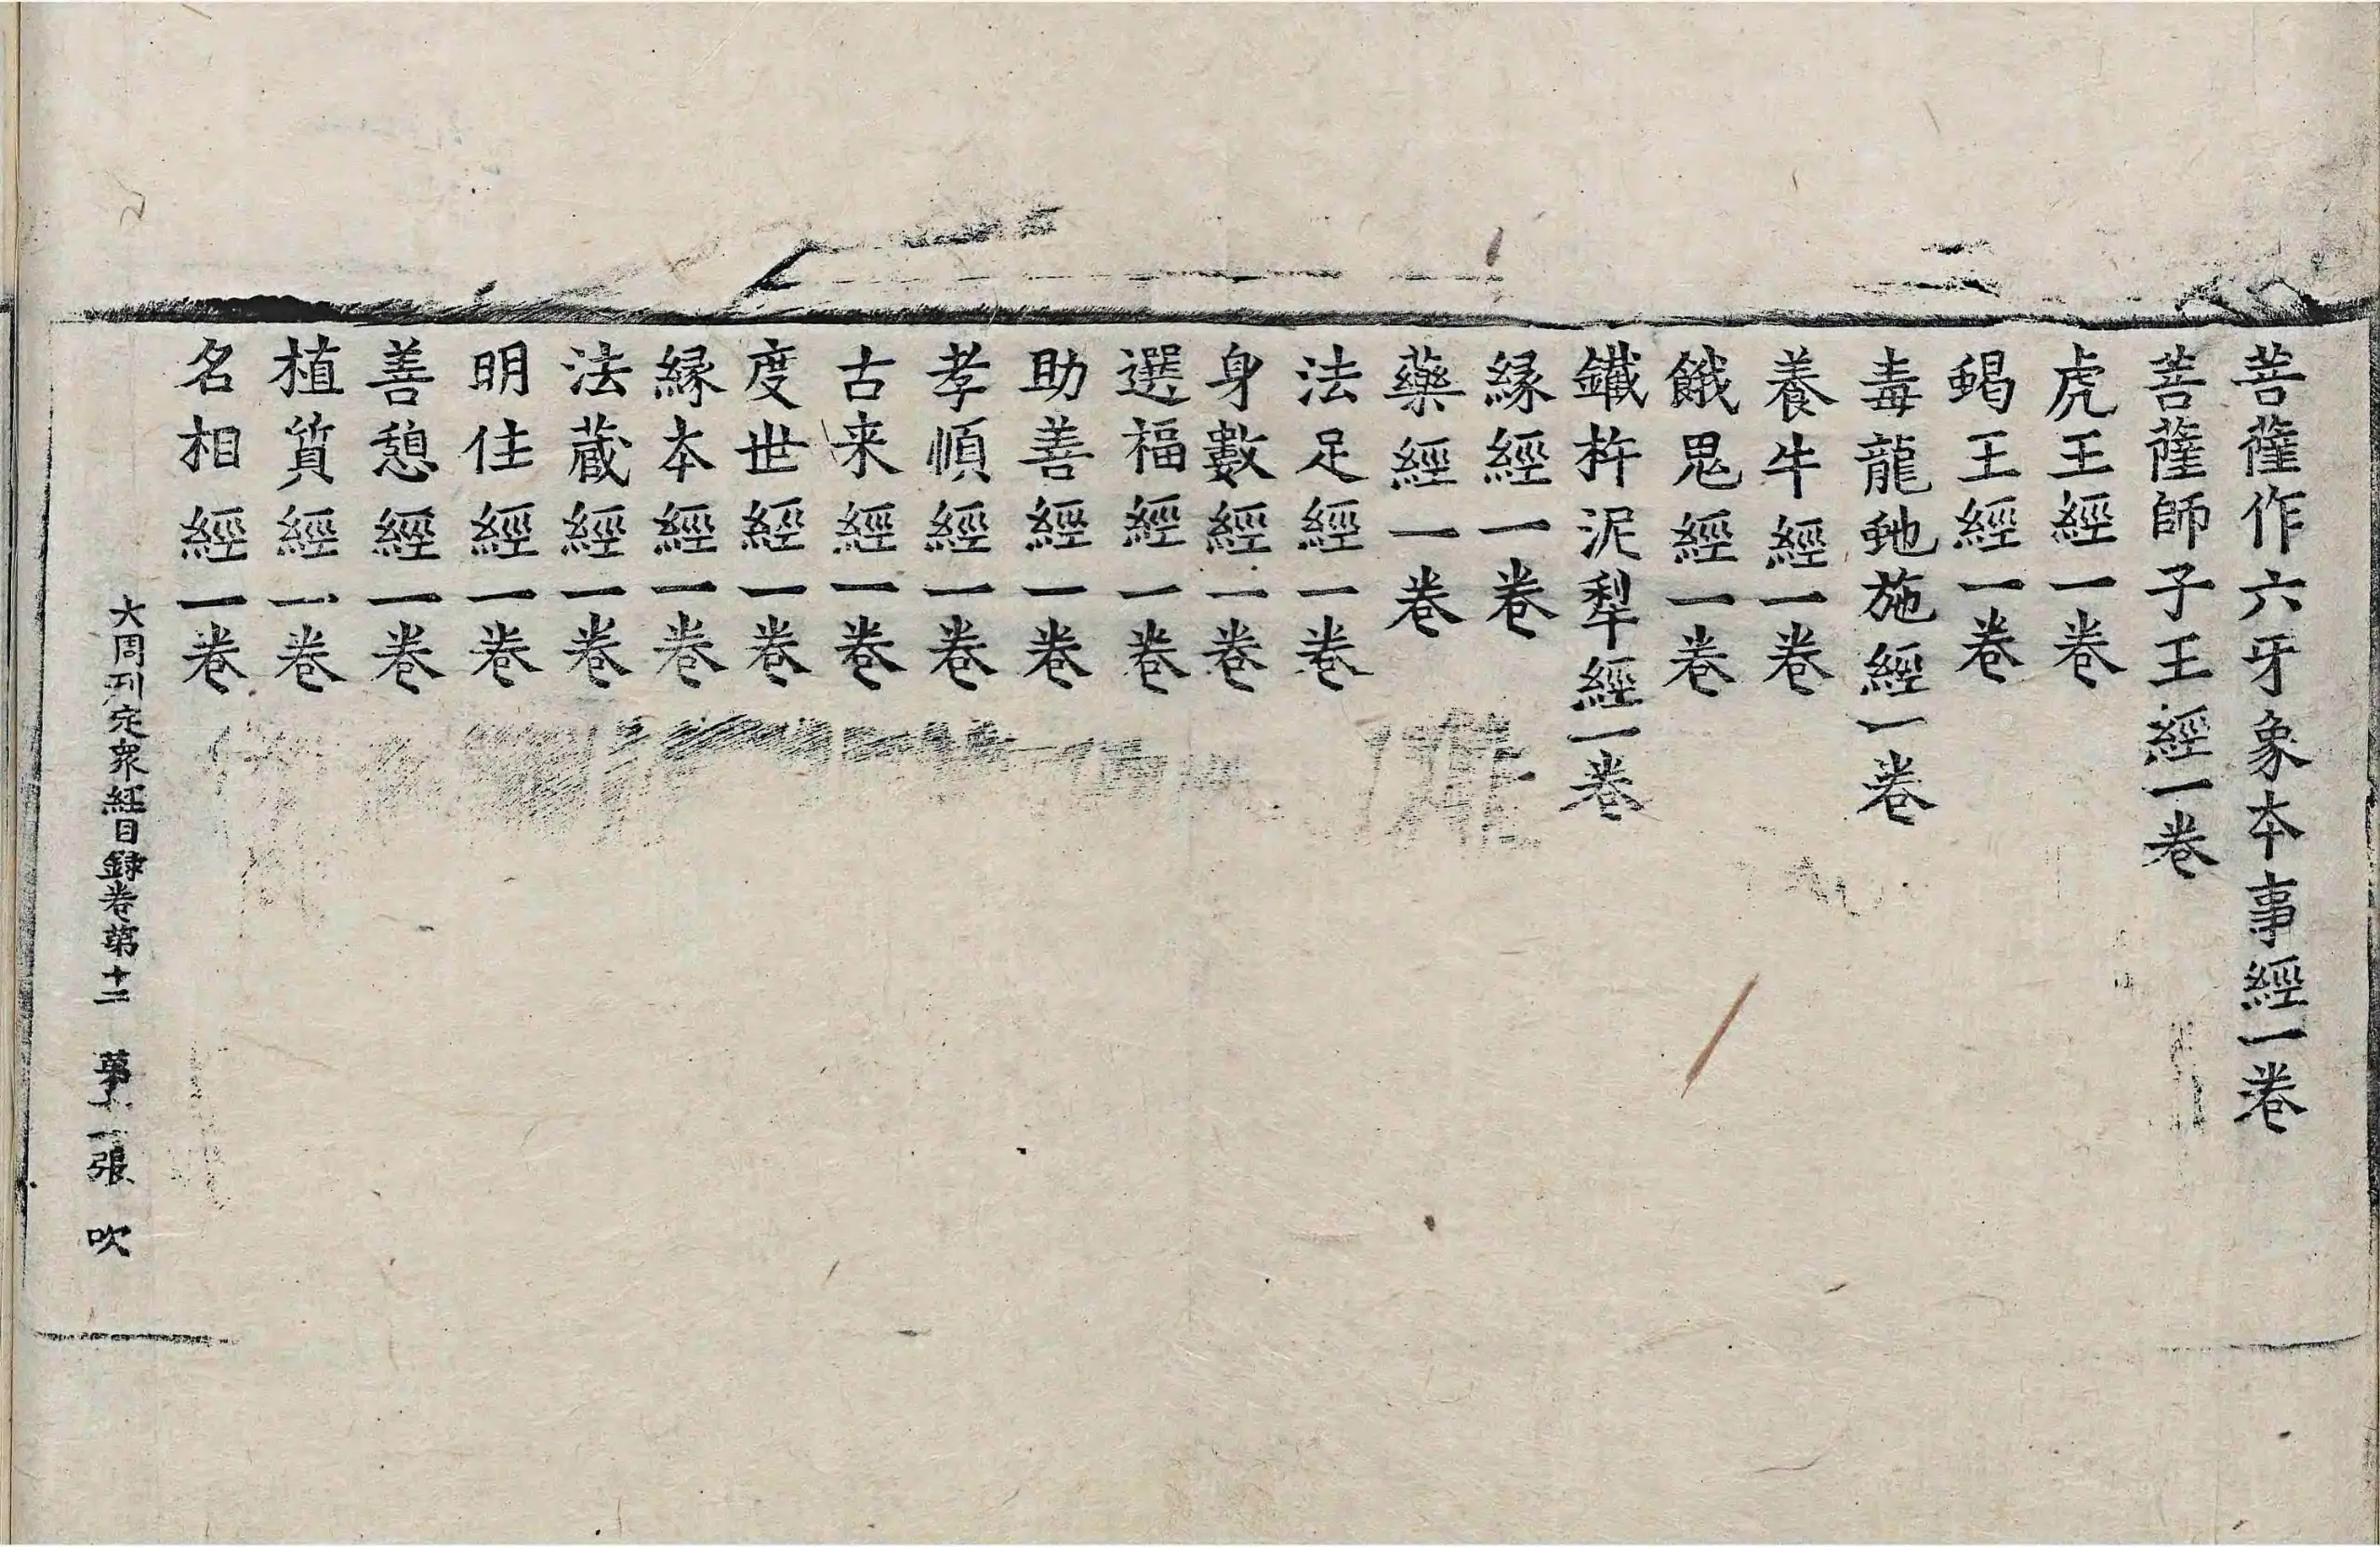 菩薩作六牙象本事經一卷
菩薩師子王經一卷
虎王經一卷
蝎王經一卷
毒龍虵施經一卷
養牛經一卷
餓鬼經一卷
鐵杵泥犁經一卷
縁經一卷
藥經一卷
法足經一卷
身數經一卷
選福經一卷
助善經一卷
孝順經一卷
古来經一卷
度世經一卷
縁本經一卷
法蔵經一卷
明住經一卷
善憩經一卷
植質經一卷
名相經一卷
大周刊定衆経目録卷第十二 第十一張 吹